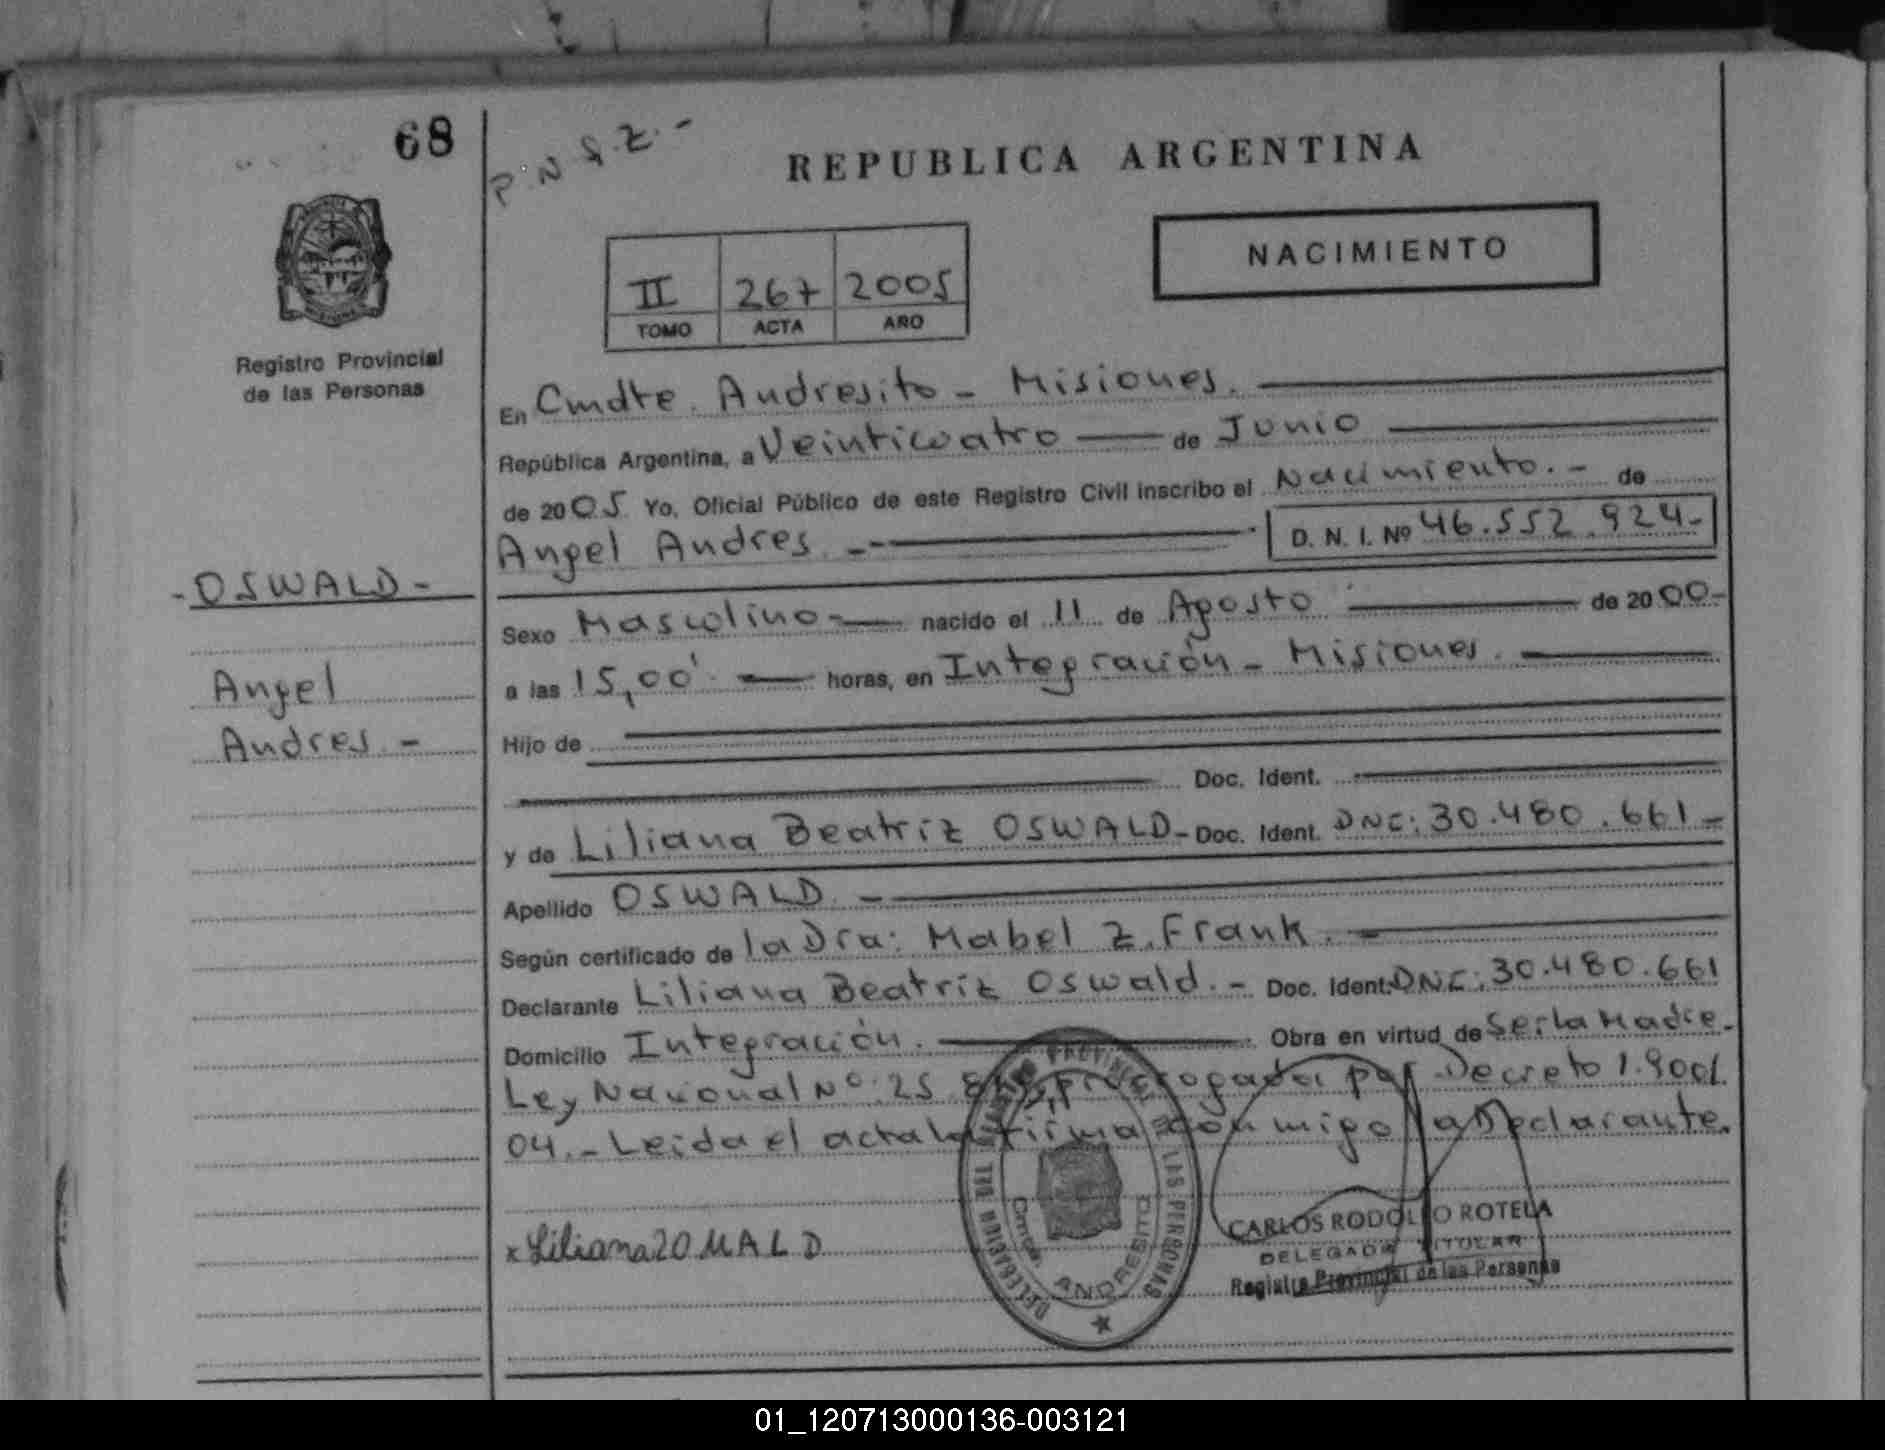 68
P.N.
REPUBLICA ARGENTINA
NACIMIENTO
II 267 2005
TOMO ACTA AÑO
Registro Provincial
de las Personas
En Cmdte. Andresito - Misiones.
República Argentina, a Veinticuatro de Junio
de 2005. Yo, Oficial Público de este Registro Civil inscribo el Nacimiento.- de
Angel Andres - D. N. I. Nº 46.552.924-
-OSWALD-
Angel
Andres.-
Sexo Masculino- nacido el 11 de Agosto de 2000-
a las 15,00' horas, en Integración - Misiones.
Hijo de
Doc. Ident.
y de Liliana Beatriz OSWALD- Doc. Ident. DNC: 30.480.661-
Apellido OSWALD. -
Según certificado de la Dra: Mabel Z. Frank. -
Declarante Liliana Beatriz Oswald. - Doc. Ident: DNC: 30.480.661
Domicilio Integración. Obra en virtud de Ser la Madre.
Ley Nacional Nº: 25. prorrogada por Decreto 1.900/.
04.- Leida el acta la firma conmigo la Declarante.
x Liliana
DELEGACION
DE LAS PERSONAS
Cmdte.
ANDRESITO
CARLOS RODOLFO ROTELA
DELEGADO TITULAR
Registro Provincial de las Personas
01_120713000136-003121